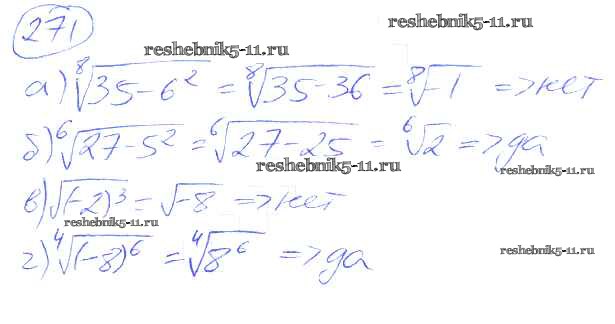 271
reshebnik5-11.ru
а) ⁸√(35-6²) = ⁸√(35-36) = ⁸√-1 => нет
б) ⁶√(27-5²) = ⁶√(27-25) = ⁶√2 => да
reshebnik5-11.ru
reshebnik5-11.ru
в) √(-2)³ = √-8 => нет
reshebnik5-11.ru
г) ⁴√(-8)⁶ = ⁴√8⁶ => да
reshebnik5-11.ru